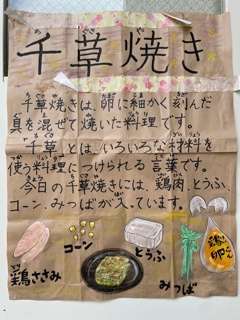 千草焼き
千草焼きは、卵に細かく刻んだ
具を混ぜて焼いた料理です。
"千草"とは、いろいろな材料を
使う料理につけられる言葉です。
今日の千草焼きには、鶏肉、とうふ、
コーン、みつばが入っています。
鶏ささみ
コーン
とうふ
みつば
鶏卵